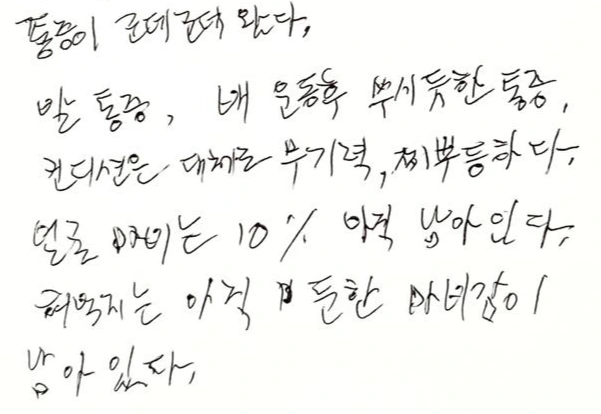 통증이 군데군데 왔다.
발 통증, 배 운동후 뿌시듯한 통증,
컨디션은 대체로 무기력, 찌뿌등하다.
얼굴 마비는 10% 아직 남아 있다.
허벅지는 아직 둔한 마비감이
남아 있다.